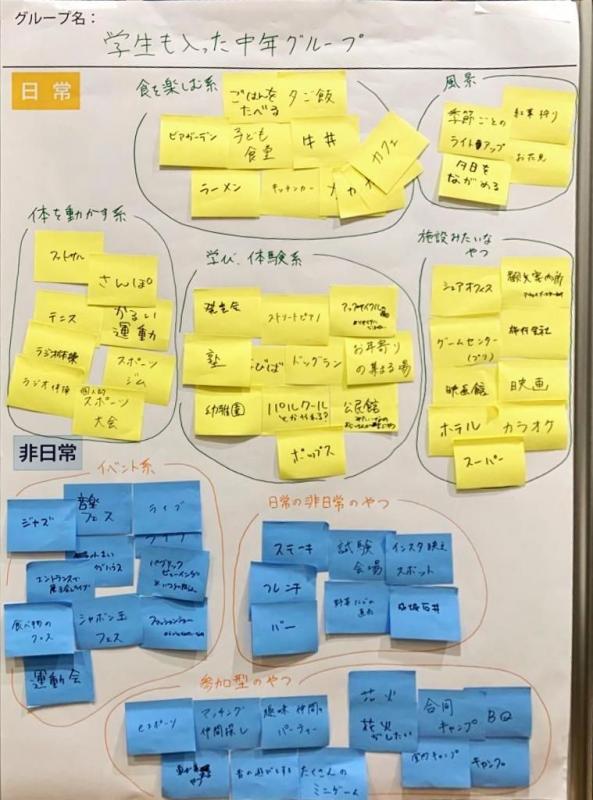 グループ名:
学生も入った中年グループ
日常
食を楽しむ系
ごはんを
たべる
夕ご飯
ビアガーデン
子ども
食堂
牛丼
カフェ
ラーメン
キッチンカー
風景
季節ごとの
ライトアップ
紅葉狩り
夕日を
ながめる
お花見
体を動かす系
フットサル
さんぽ
テニス
かるい
運動
ラジオ体操
スポーツ
ジム
ラジオ体操
個人的
スポーツ
大会
学び、体験系
発表会
ストリートピアノ
塾
ドッグラン
お年寄り
の集まる場
幼稚園
パルクール
とか作れる?
公民館
ポップス
施設みたいな
やつ
シェアオフィス
ゲームセンター
(プリ)
映画館
映画
ホテル
カラオケ
スーパー
非日常
イベント系
ジャズ
音楽
フェス
ライブ
パブリック
ビューイング
エントランスで
食べ物の
フェス
シャボン玉
フェス
ファッションショー
運動会
日常の非日常のやつ
ステーキ
試験
会場
インスタ映え
スポット
フレンチ
バー
参加型のやつ
eスポーツ
マッチング
仲間探し
趣味仲間の
パーティー
昔の遊びをする
たくさんの
ミニゲーム
花火
花火
がしたい
合同
キャンプ
BQ
室内キャンプ
キャンプ